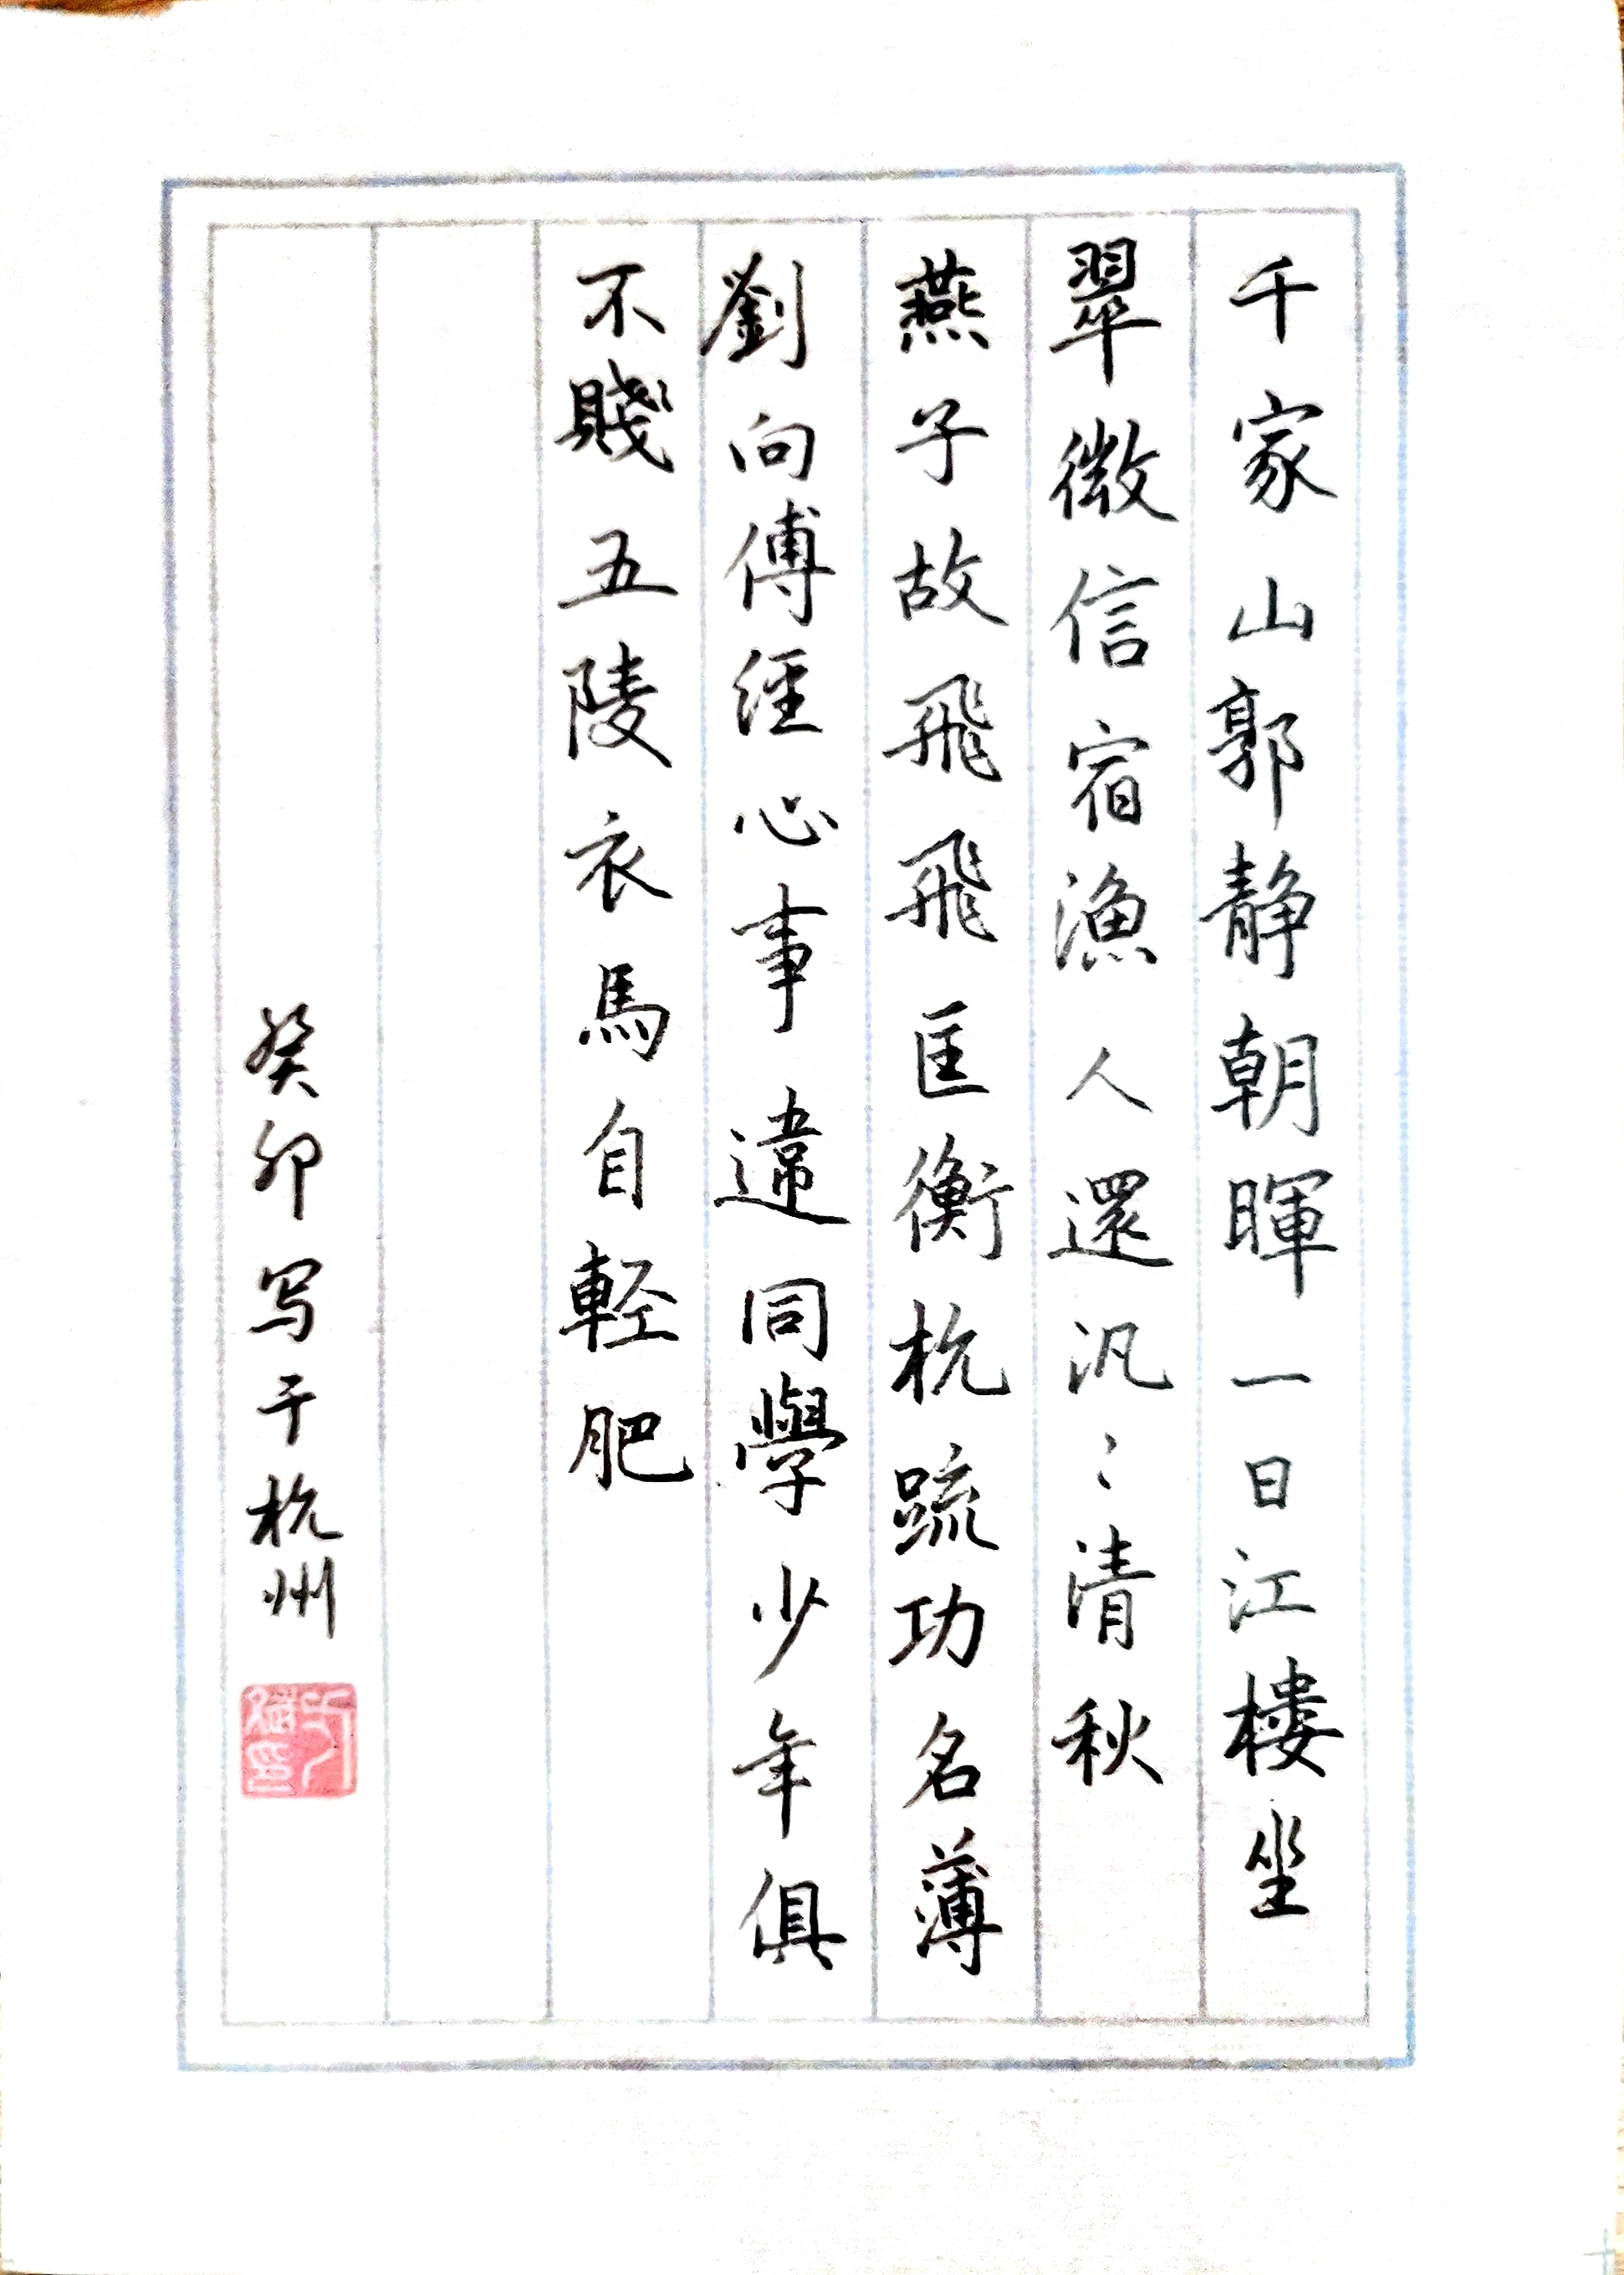 千家山郭静朝暉一日江樓坐
翠微信宿漁人還汎〻清秋
燕子故飛飛匡衡杭疏功名薄
劉向傳經心事違同學少年俱
不賤五陵衣馬自輕肥
癸卯写于杭州